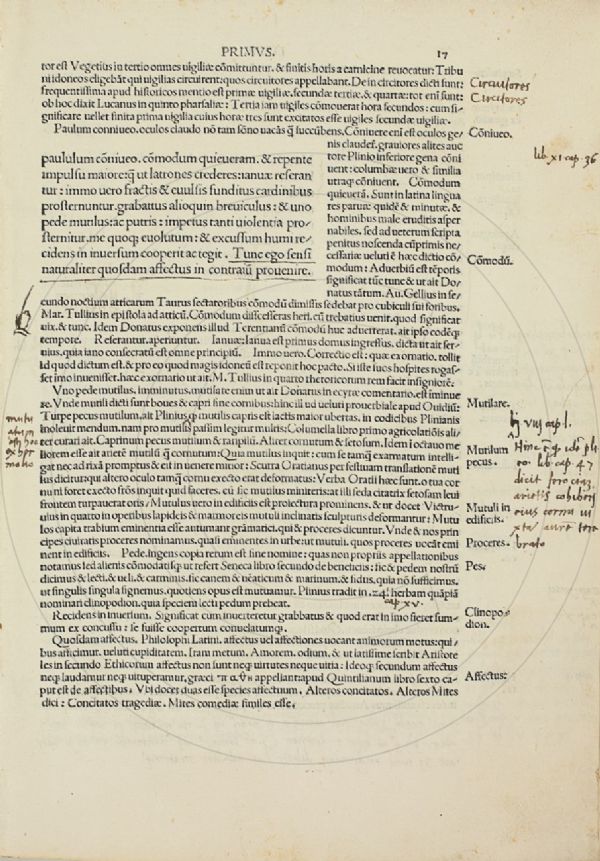 PRIMVS.
17
tor est Vegetius in tertio omnes uigiliæ cōmittuntur. & finitis horis a cornicine reuocātur: Tribu
ni idoneos eligebāt qui uigilias circuirent: quos circuitores appellabant. De in circitores dicti sunt:
frequentissima apud historicos mentio est primæ uigiliæ. secundæ tertiæ. & quartæ: tot eni sunt:
ob hoc dixit Lucanus in quinto pharsaliæ: Tertia iam uigiles cōmouerat hora secundos: cum si-
gnificare uellet finita prima uigilia cuius horæ tres sunt excitatos esse uigiles secundæ uigiliæ.
Circuitores
Circitores
Paulum conniueo. oculos claudo nō tam sōno uacās q̄ succūbens. Cōniuere eni est oculos ge-
Cōniueo.
nis claudere. grauiores alites auc
tore Plinio inferiore gena cōni
uent: columbæ uero & similia
utraq; cōniuent. Cōmodum
quieuerā. Sunt in latina lingua
res paruæ quidē & minutæ. &
hominibus male eruditis asper
nabiles. sed ad ueterum scripta
penitus noscenda cū primis ne-
cessariæ ueluti ē hæc dictio cō-
modum: Aduerbiū est tēporis
significat tūc tunc & ut ait Do-
natus tātum. Au. Gellius in se-
lib. xi cap. 36
Cōmodū.
paululum cōniueo. cōmodum quieueram. & repente
impulsu maiore q̄ ut latrones crederes: ianuæ reseran
tur: immo uero fractis & euulsis funditus cardinibus
prosternuntur. grabatus alioquin breuiculus: & uno
pede mutilus: ac putris: impetus tanti uiolentia pro-
sternitur. me quoq; euolutum: & excussum humi re-
cidens in inuersum cooperit ac tegit. Tunc ego sensi
naturaliter quosdam affectus in contrariū prouenire.
cundo noctium atticarum Taurus sectatoribus cōmodū dimissis sedebat pro cubiculi sui foribus.
Mar. Tullius in epistola ad atticū. Cōmodum discesseras heri. cū trebatius uenit. quod significat
uix. & tunc. Idem Donatus exponens illud Terentianū cōmodū huc aduerterat. ait ipso codē q;
tempore. Reserantur. aperiuntur. Ianuæ: Ianua est primus domus ingressus. dicta ut ait ser-
uius. quia iano consecratū est omne principiū. Immo uero. Correctio est: quæ ex ornatio. tollit
Id quod dictum est. & pro eo quod magis idoneū est reponit hoc pacto. Si iste suos hospites rogas-
set imo inuersisset. hæc exornatio ut ait. M. Tullius in quarto rhetoricorum rem facit insigniorē.
Vno pede mutilus. imminutus. mutilare eniū ut ait Donatus in ecyræ comentario. est iminue
re. Vnde mutili dicti sunt boues & capri sine cornibus: hinc illi ud ueluti prouerbiale apud Ouidiū:
Turpe pecus mutilum. ait Plinius q̄ mutilis capris est lactis maior ubertas. in codicibus Plinianis
inoleuit mendum. nam pro mutilis passim legitur multis: Columella libro primo agricolatiōis ali-
ter curari ait. Caprinum pecus mutilum & raripilū. Aliter cornutum & setosum. Idem i octauo me
liorem esse ait arietē mutilū q̄ cornutum: Quia mutilus inquit: cum se tamq̄ exarmatum intelli-
gat nec ad rixā promptus & eit in uenere mitior: Scurra Oratianus per festiuam translationē muti
lus dicitur: qui altero oculo tamq̄ cornu execto erat deformatus: Verba Oratii hæc sunt. o tua cor
nu ni foret execto frōs inquit quid faceres. cū sic mutilus miniteris: at illi seda cicatrix setosam leui
frontem turpauerat oris: Mutulus uero in edificiis est proiectura prominens. & ut docet Victru-
uius in quarto in operibus lapideis & marmoreis mutuli inclinatis sculpturis deformantur: Mutu
los capita trabium eminentia esse autumant grāmatici. qui & proceres dicuntur. Vnde & nos prin
cipes ciuitatis proceres nominamus. quasi eminentes in urbe ut mutuli. quos proceres uocāt emi
nent in edificiis. Pede. Ingens copia rerum est sine nomine: quas non propriis appellationibus
notamus sed alienis cōmodatisq; ut refert Seneca libro secundo de beneficiis: sic & pedem nostrū
dicimus & lecti. & ueli. & carminis. sic canem & uēaticum & marinum. & sidus. quia nō sufficimus.
ut singulis singula signemus. quotiens opus est mutuamur. Plinius tradit in .24. herbam q̄ apiā
nominari clinopodion. quia speciem lecti pedum prebeat. cap. xv.
Mutilare.
Mutilum
pecus.
Mutuli in
edificiis.
Proceres.
Pes.
Clinopo-
dion.
Recidens in inuersum. Significat cum inuerteretur grabbatus & quod erat in imo fieret sum-
mum ex concussu: se fuisse coopertum conuelatumq;.
Quosdam affectus. Philosophi Latini. affectus uel affectiones uocant animorum motus: qui-
bus afficimur. ueluti cupiditatem. Iram metum. Amorem. odium. & ut latissime scribit Aristote
les in secundo Ethicorum affectus non sunt neq; uirtutes neque uitia: Ideo q; secundum affectus
neq; laudamur neq; uituperamur. græci appellant: apud Quintilianum libro sexto ca-
put est de affectibus. Vbi docet duas esse species affectuum. Alteros concitatos. Alteros Mites
dici: Concitatos tragediæ. Mites comediæ similes esse.
Affectus: